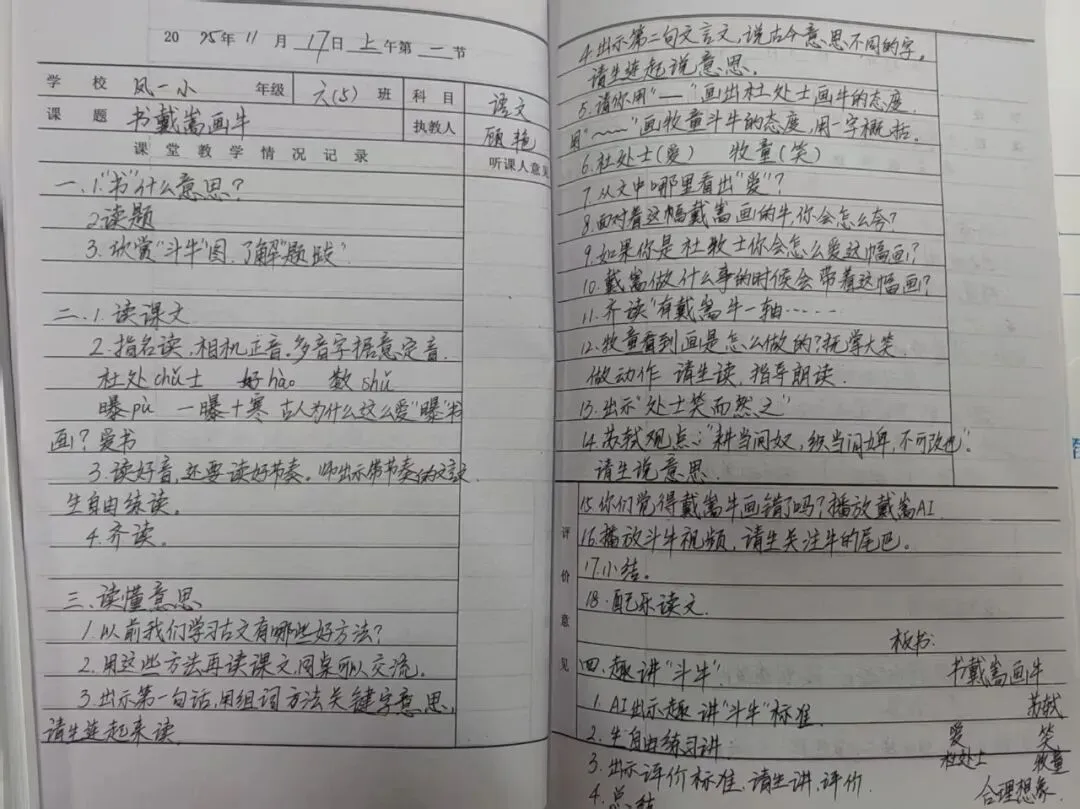 20 25年 11 月 17日 上午第 一 节
学 校 凤一小 年级 六(5) 班 科 目 语文
课 题 书戴嵩画牛 执教人 顾艳
课 堂 教 学 情 况 记 录 听课人意见
一、1."书"什么意思?
2.读题
3.欣赏"斗牛"图,了解"题跋"
二、1.读课文
2.指名读,相机正音。多音字据意定音.
杜处chǔ士 好hào 数shǔ
曝pù 一曝十寒 古人为什么这么爱"曝"书
画? 爱书
3.读好音,还要读好节奏。师出示带节奏的文言文
生自由练读。
4.齐读。
三、读懂意思
1.以前我们学习古文有哪些好方法?
2.用这些方法再读课文同桌可以交流。
3.出示第一句话,用组词方法关键字意思,
请生连起来读
4.出示第二句文言文,说古今意思不同的字。
请生连起说意思.
5.请你用"—"画出杜处士画牛的态度
用"~~~"画牧童斗牛的态度,用一字概括。
6.杜处士(爱) 牧童(笑)
7.从文中哪里看出"爱"?
8.面对着这幅戴嵩画的牛,你会怎么夸?
9.如果你是杜牧士你会怎么爱这幅画?
10.戴嵩做什么事的时候会带着这幅画?
11.齐读"有戴嵩牛一轴……
12.牧童看到画是怎么做的?抚掌大笑.
做动作 请生读,指导朗读.
13.出示"处士笑而然之"
14.苏轼观点:"耕当问奴,织当问婢,不可改也".
请生说意思.
15.你们觉得戴嵩牛画错了吗?播放戴嵩AI
16.播放斗牛视频,请生关注牛的尾巴。
17.小结。
18.配乐读文.
评价意见
四.趣讲"斗牛"
1.AI出示趣讲"斗牛"标准.
2.生自由练习讲.
3.出示评价标准,请生讲,评价.
4.总结
板书:
书戴嵩画牛
苏轼
爱 笑
杜处士 牧童
合理想象